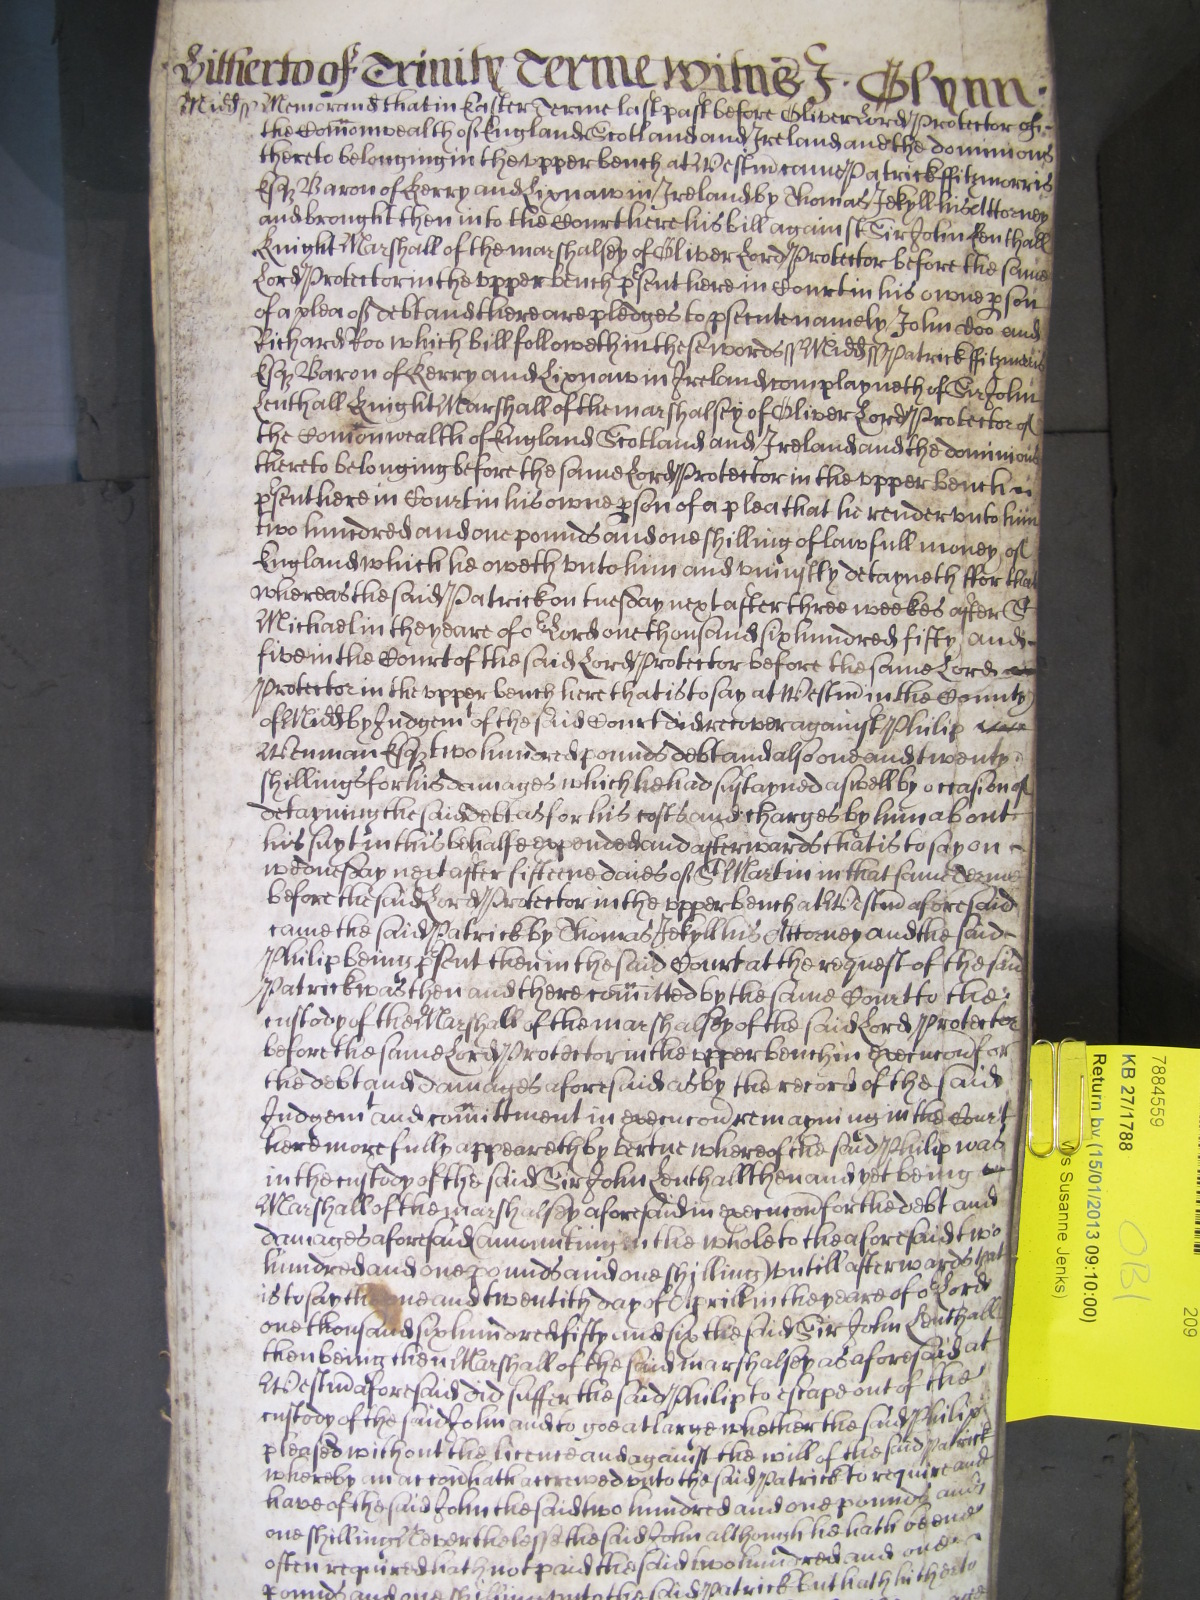 Hitherto of Trinity Terme Witnes J. Glynn.
Midd ss Memorand that in Easter Terme last past before Oliver Lord Protector of
the Com̄onwealth of England Scotland and Ireland and the dominions
thereto belonging in the upper bench at Westm̄ came Patrick ffitzmorris
Esqr Baron of Kerry and Lixnaw in Ireland by Thomas Jekyll his Attorney
and brought then into the Court here his bill against Sir John Lenthall
Knight Marshall of the marshalsey of Oliver Lord Protector before the same
Lord Protector in the upper bench psent here in Court in his owne pson
of a plea of debt and there are pledges to psecute namely John Doo and
Richard Roo which bill followeth in these words ss Midd ss Patrick ffitzmorris
Esqr Baron of Kerry and Lixnaw in Ireland complayneth of Sir John
Lenthall Knight Marshall of the marshalsey of Oliver Lord Protector of
the Com̄onwealth of England Scotland and Ireland and the dominions
thereto belonging before the same Lord Protector in the upper bench
psent here in Court in his owne pson of a plea that he render vnto him
two hundred and one pounds and one shilling of lawfull money of
England which he oweth vnto him and vniustly detayneth ffor that
whereas the said Patrick on tuesday next after three weekes after St
Michael in the yeare of or Lord one thousand six hundred fifty and
five in the Court of the said Lord Protector before the same Lord
Protector in the upper bench here that is to say at Westm̄ in the County
of Midd by Judgemt of the said Court did recover against Philip
Wenman Esqr two hundred pounds debt and also one and twenty
shillings for his damages which he had sustayned aswell by occasion of
detayning the said debt as for his costs and charges by him about
his suyt in this behalfe expended and afterwards that is to say on
wednesday next after fifteene daies of St Martin in that same Terme
before the said Lord Protector in the upper bench at Westm̄ aforesaid
came the said Patrick by Thomas Jekyll his Attorney and the said
Philip being psent then in the said Court at the request of the said
Patrick was then and there com̄itted by the same Court to the
custody of the Marshall of the marshalsey of the said Lord Protector
before the same Lord Protector in the upper bench in execucon for
the debt and damages aforesaid as by the record of the said
Judgemt and com̄ittment in execucon remayning in the Court
here more fully appeareth by vertue whereof the said Philip was
in the custody of the said Sir John Lenthall then and yet being
Marshall of the marshalsey aforesaid in execucon for the debt and
damages aforesaid (amounting in the whole to the aforesaid two
hundred and one pounds and one shilling) vntill afterwards that
is to say the one and twentith day of Aprill in the yeare of or Lord
one thousand six hundred fifty and six the said Sir John Lenthall
then being then Marshall of the said marshalsey as aforesaid at
Westm̄ aforesaid did suffer the said Philip to escape out of the
custody of the said John and to goe at large whether the said Philip
pleased without the licence and against the will of the said Patrick
whereby an accon hath accrewed vnto the said Patrick to require and
have of the said John the said two hundred and one pounds and
one shilling Neverthelesse the said John although he hath beene
often required hath not paid the said two hundred and one
pounds and one shilling vnto the said Patrick but hath hitherto
7884559
KB 27/1788
Return by (15/01/2013 09:10:00)
Susanne Jenks)
OBI
209